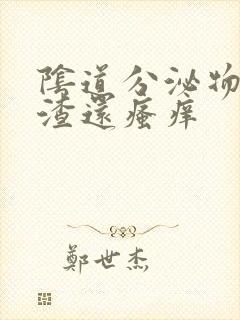 陰道分泌物
渣還瘙痒
鄭世杰